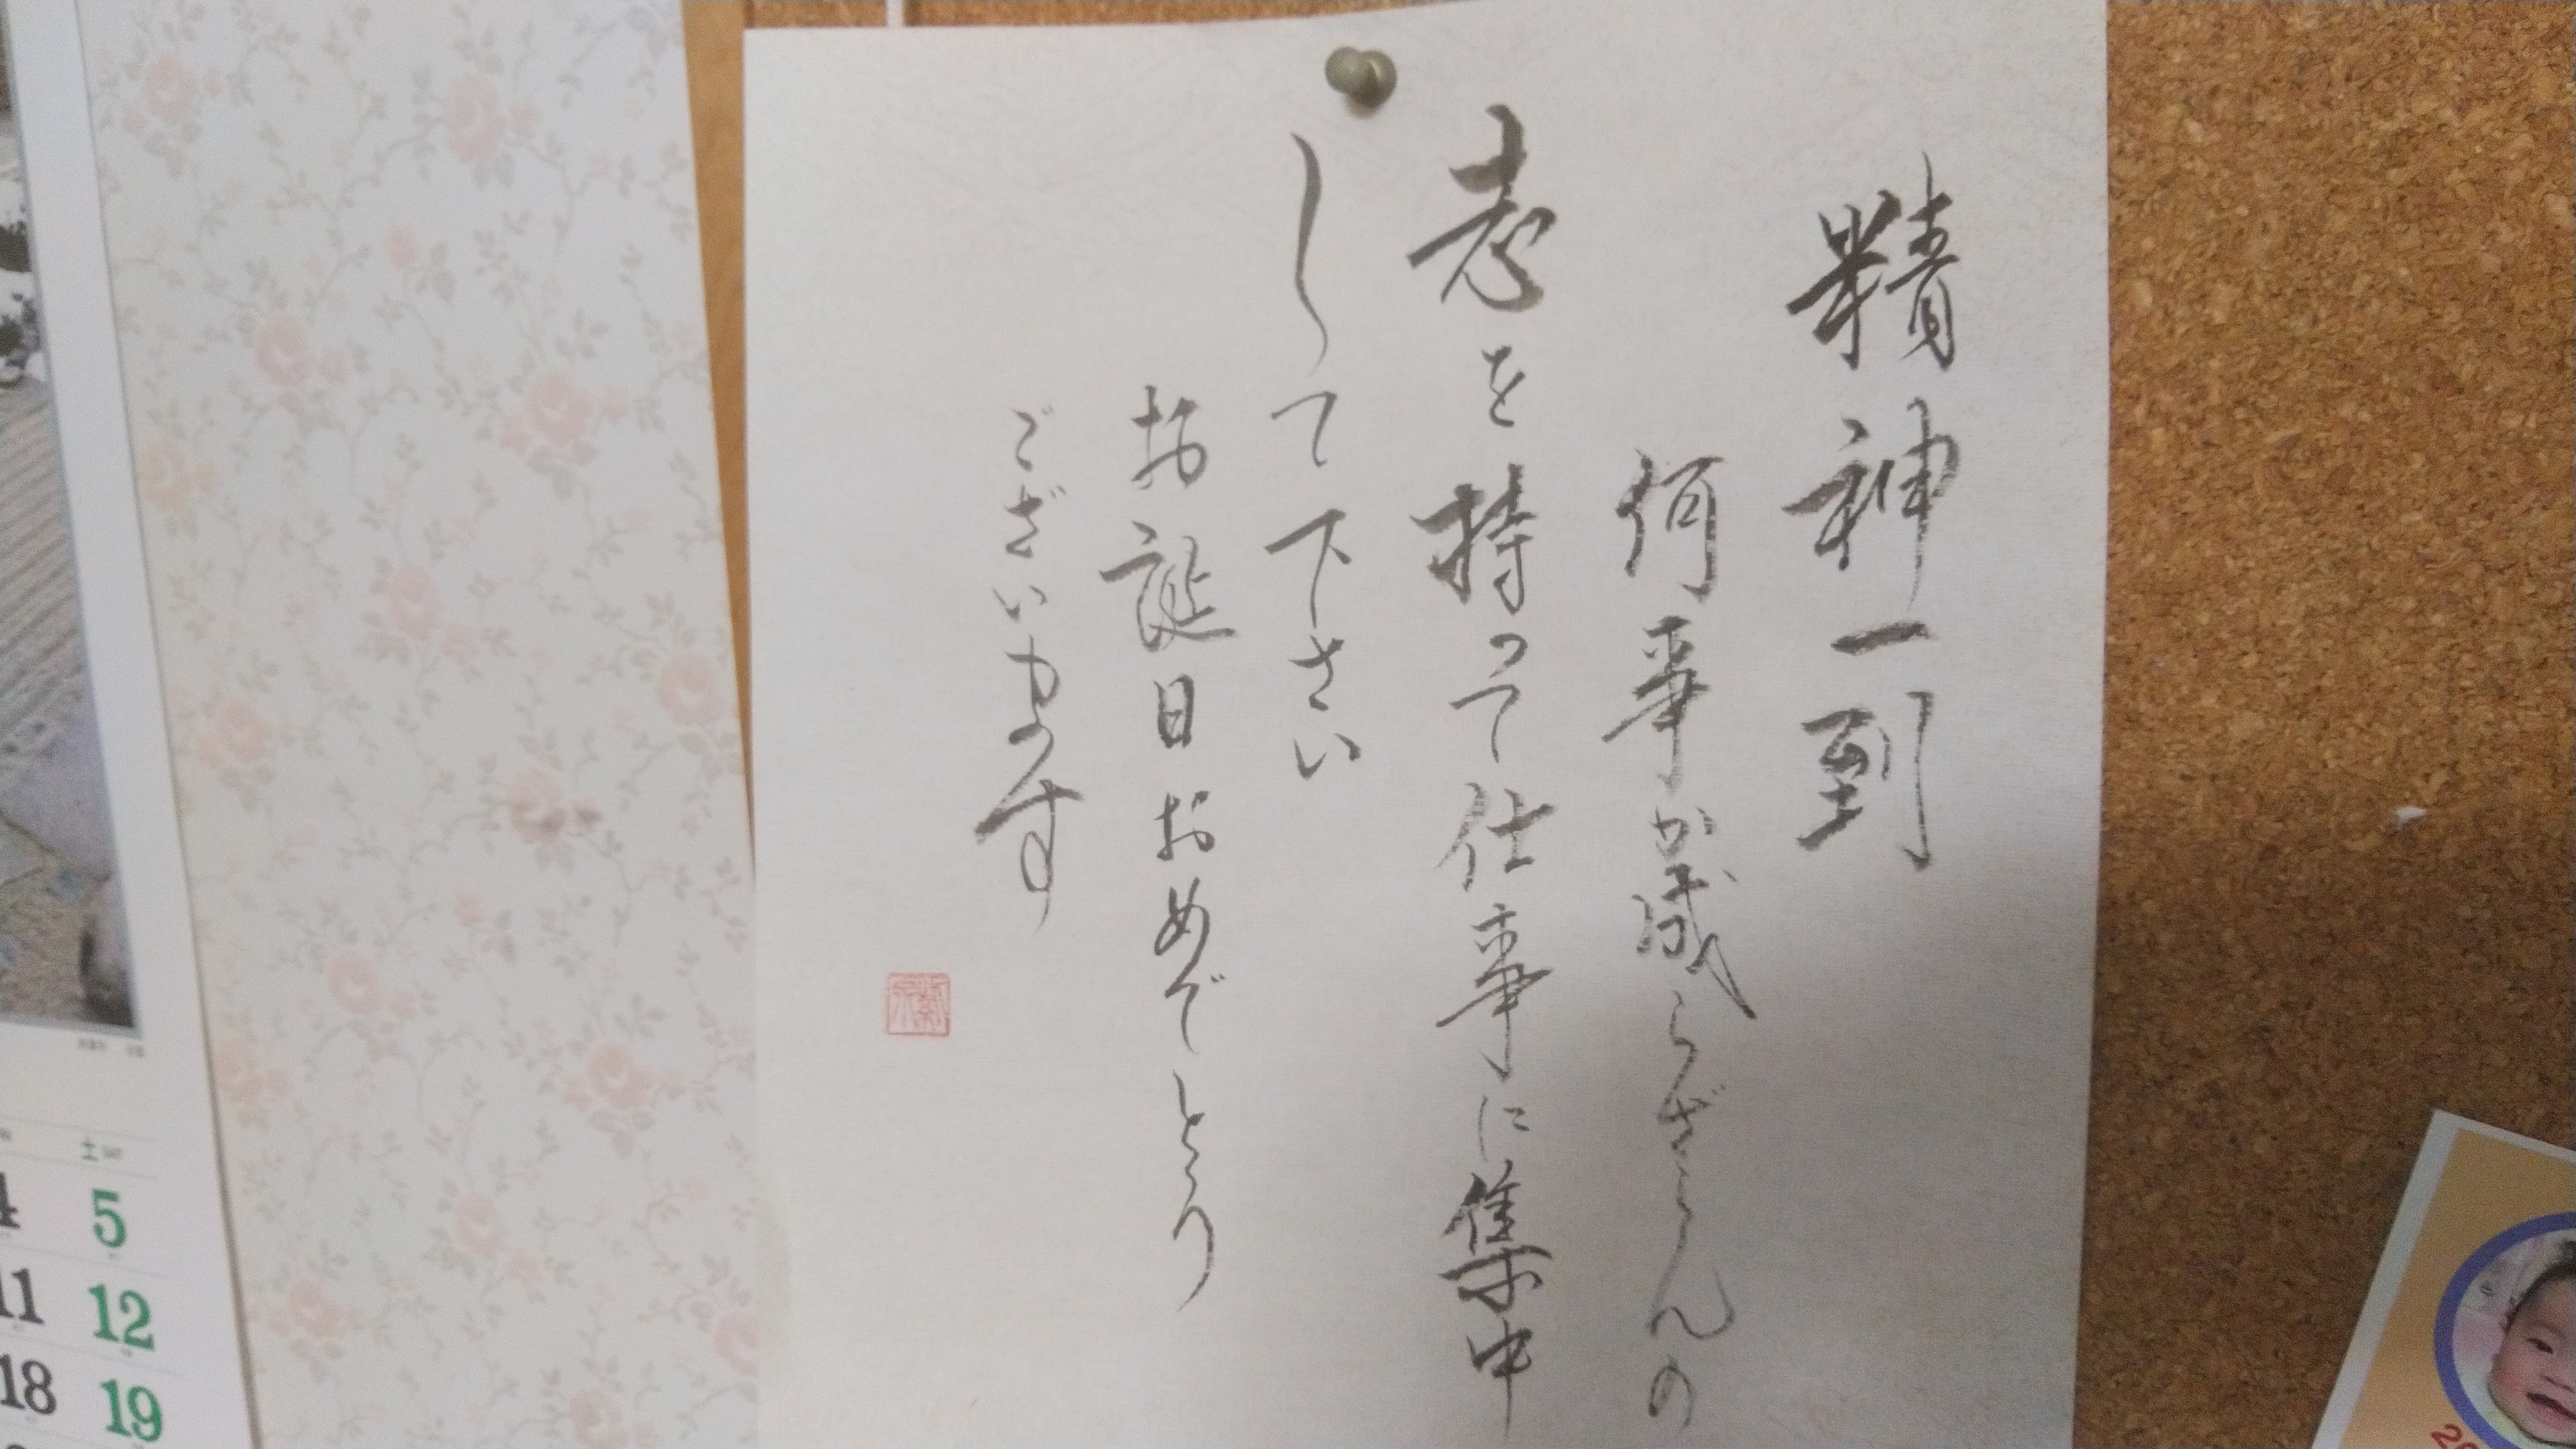 精神一到
何事か成らざらんの
考を持って仕事に集中
して下さい
お誕生日おめでとう
ございます
土
4 5
11 12
18 19